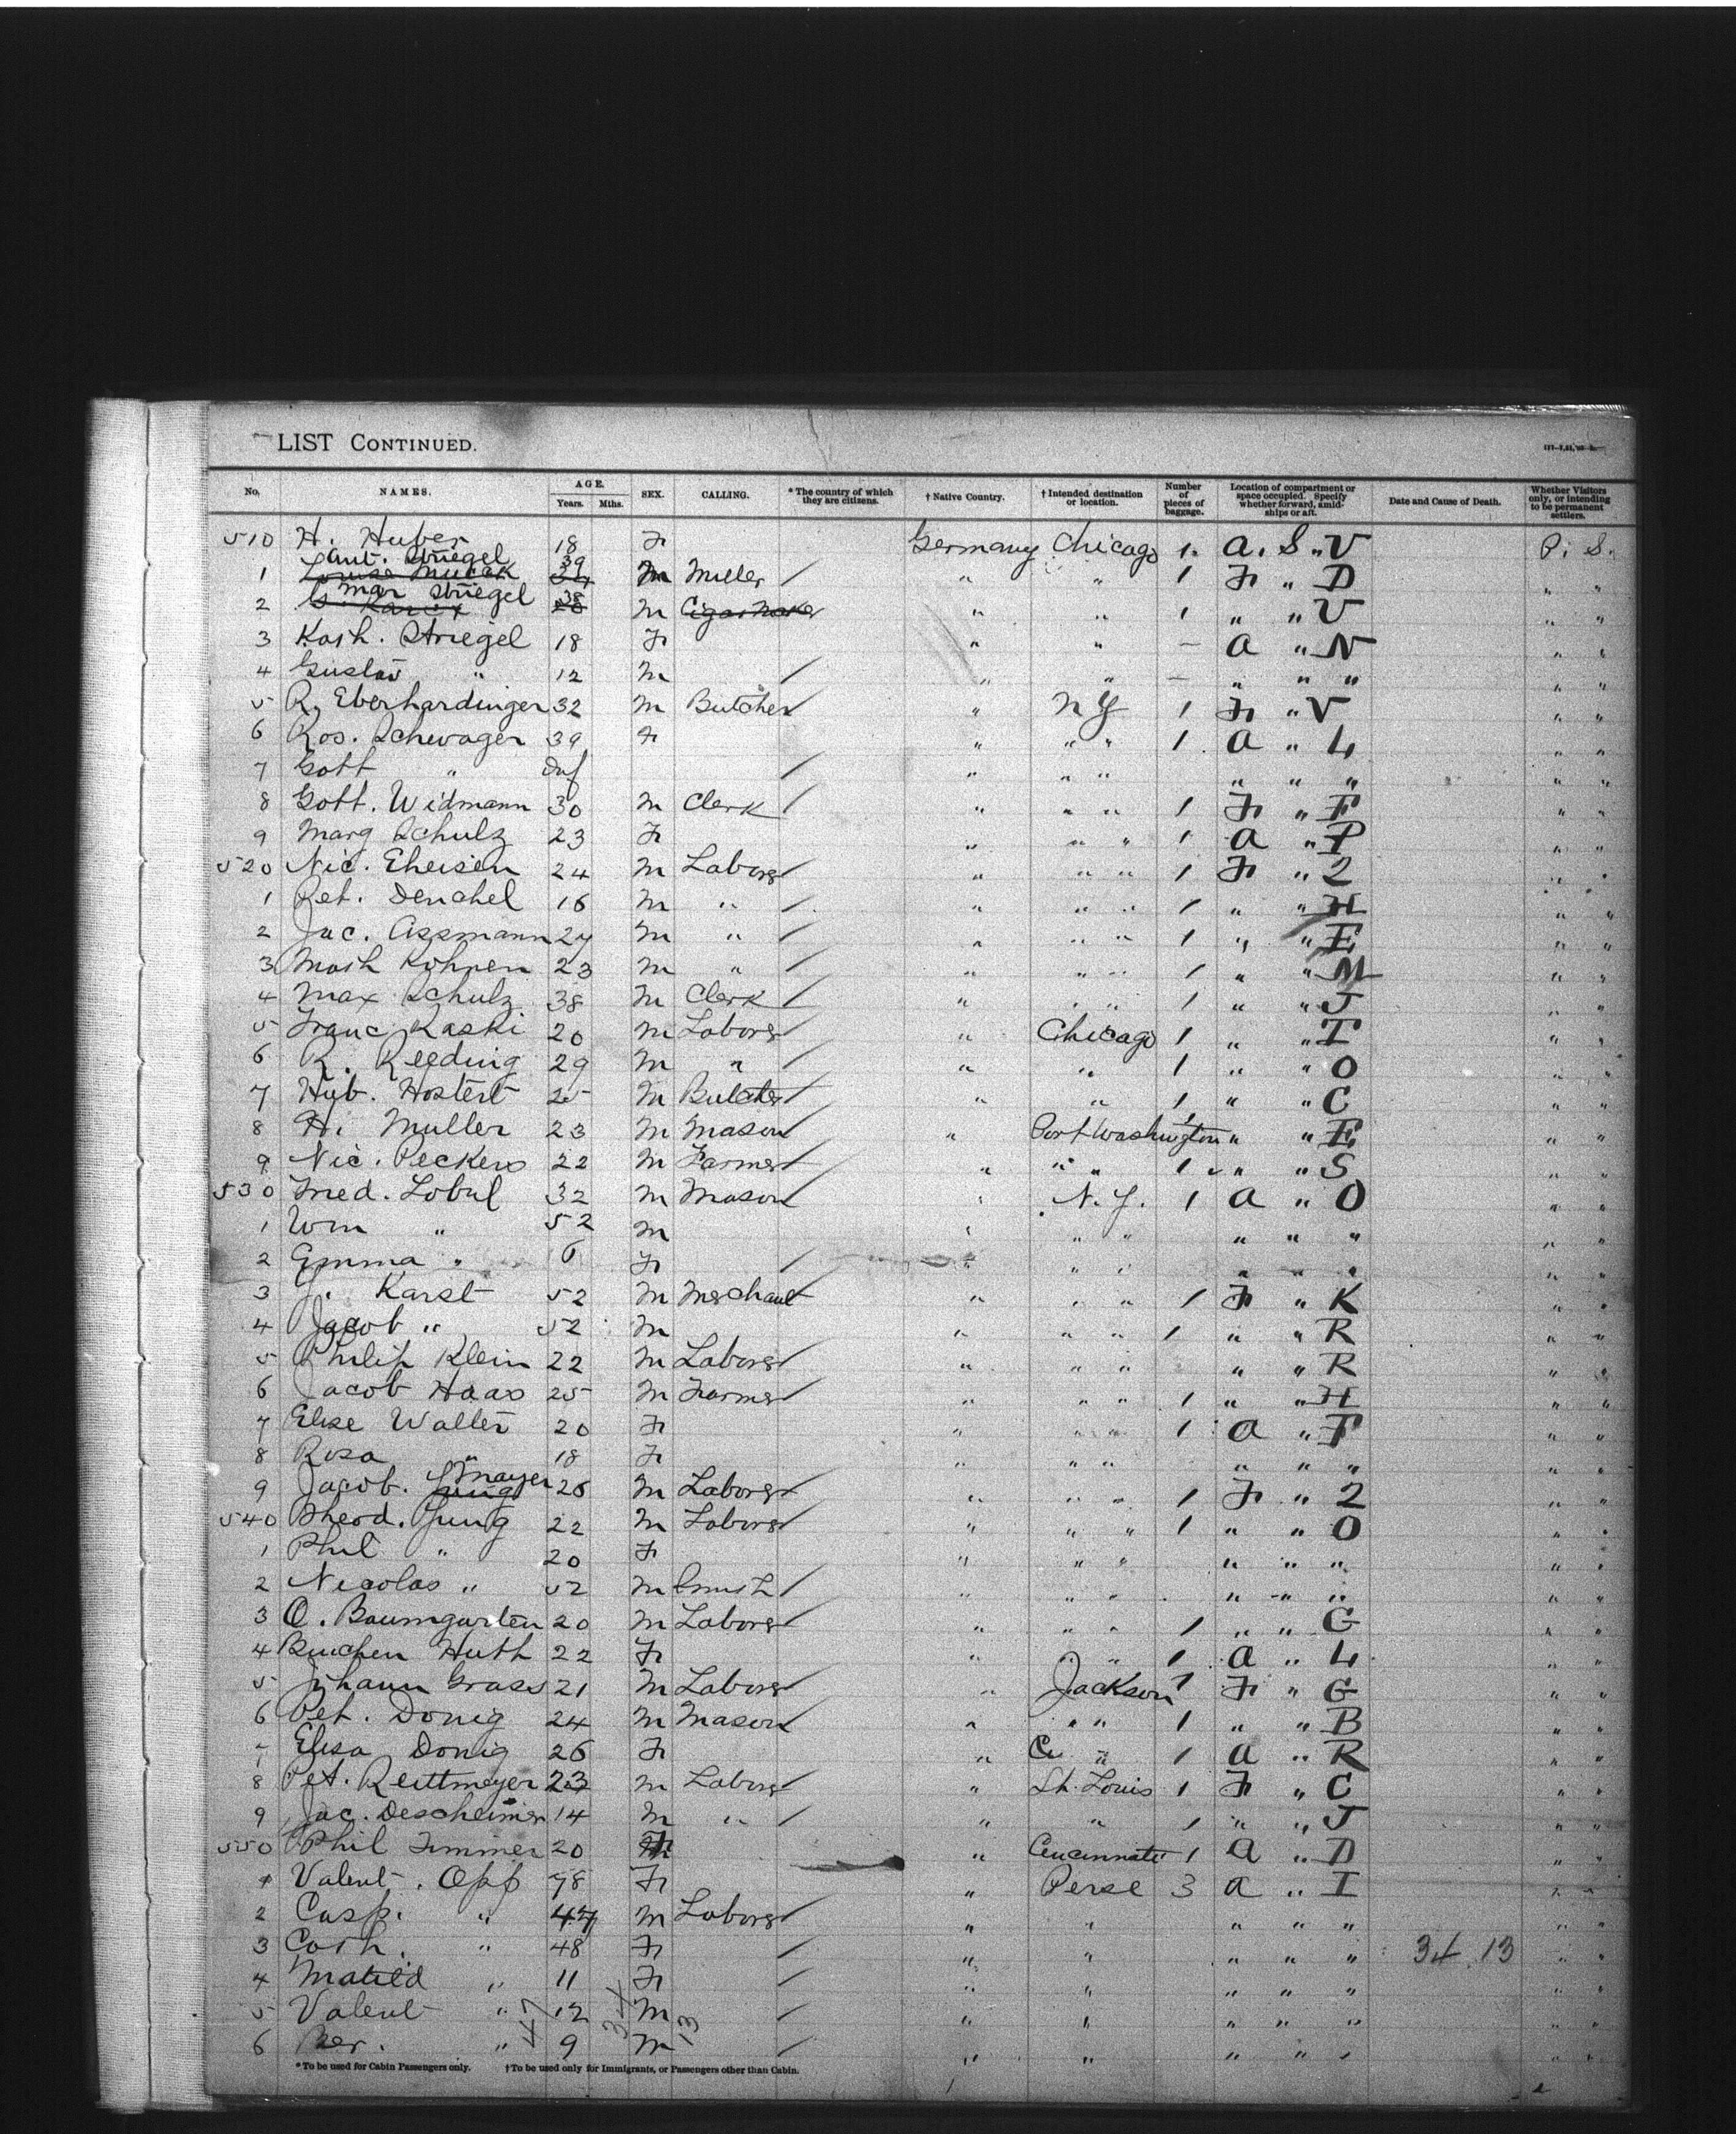 LIST CONTINUED.
No. NAMES. AGE. Years. Mths. SEX. CALLING. * The country of which they are citizens. † Native Country. † Intended destination or location. Number of pieces of baggage. Location of compartment or space occupied. Specify whether forward, amidships or aft. Date and Cause of Death. Whether Visitors only, or intending to be permanent settlers.
510 H. Huber 18 F Germany Chicago 1 a. S " V P. S.
Ant. Striegel 39
1 Louisa 24 M Miller / " " 1 F " D " "
Mar Striegel 38
2 G. 28 M Cigarmaker " " 1 " " V " "
3 Kath. Striegel 18 F " " – a " N " "
4 Gustav " 12 M / " " – " " " " "
5 R. Eberhardinger 32 M Butcher / " N Y 1 F " V " "
6 Ros. Schwager 39 F " " " 1 a " L " "
7 Gott " Inf / " " " " " " " "
8 Gott. Widmann 30 M Clerk / " " " 1 F " F " "
9 Marg Schulz 23 F " " " 1 a " P " "
520 Nic. Eheisen 24 M Laborer / " " " 1 F " 2 " "
1 Pet. Denchel 16 M " / " " " 1 " " H " "
2 Jac. Assmann 27 M " / " " " 1 " " E " "
3 Math Kohnen 23 M " / " " " 1 " " M " "
4 Max Schulz 38 M Clerk / " " " 1 " " J " "
5 Franc Kaski 20 M Laborer / " Chicago 1 " " T " "
6 R. Reeding 29 M " / " " 1 " " O " "
7 Hub. Hostert 25 M Butcher / " " 1 " " C " "
8 H. Muller 23 M Mason / " Port Washington 1 " " E " "
9 Nic. Peckers 22 M Farmer / " " " 1 " " S " "
530 Fred. Lobul 32 M Mason / " N. Y. 1 a " O " "
1 Wm " 52 M " " " " " " " "
2 Emma " 6 F / " " " " " " " "
3 J. Karst 52 M Merchant / " " " 1 F " K " "
4 Jacob " 52 M " " " 1 " " R " "
5 Philip Klein 22 M Laborer / " " " " " R " "
6 Jacob Haas 25 M Farmer / " " " 1 " " H " "
7 Elise Walter 20 F " " " 1 a " F " "
8 Rosa " 18 F " " " " " " " "
9 Jacob. Jung Mayer 26 M Laborer / " " " 1 F " 2 " "
540 Theod. Jung 22 M Laborer / " " " 1 " " O " "
1 Phil " 20 F " " " " " " " "
2 Nicolas " 52 M / " " " " " " " "
3 O. Baumgarten 20 M Laborer / " " " 1 " " G " "
4 Huth 22 F " " " 1 a " L " "
5 Johann Grass 21 M Laborer / " Jackson 1 F " G " "
6 Pet. Donig 24 M Mason / " " " 1 " " B " "
7 Elisa Donig 26 F " " 1 a " R " "
8 Pet. Reittmeyer 23 M Laborer / " St. Louis 1 F " C " "
9 Jac. Descheimer 14 M " / " " 1 " " J " "
550 Phil Timmer 20 F " Cincinnati 1 a " D " "
1 Valent. Opp 78 F " Perse 3 a " I " "
2 Casp. " 47 M Laborer / " " " " " " "
3 Cath. " 48 F / " " " " " 34 13 " "
4 Matild " 11 F / " " " " " " "
5 Valent " 12 M / " " " " " " "
6 " 9 M / " " " " " " "
47 34 13
* To be used for Cabin Passengers only. † To be used only for Immigrants, or Passengers other than Cabin.